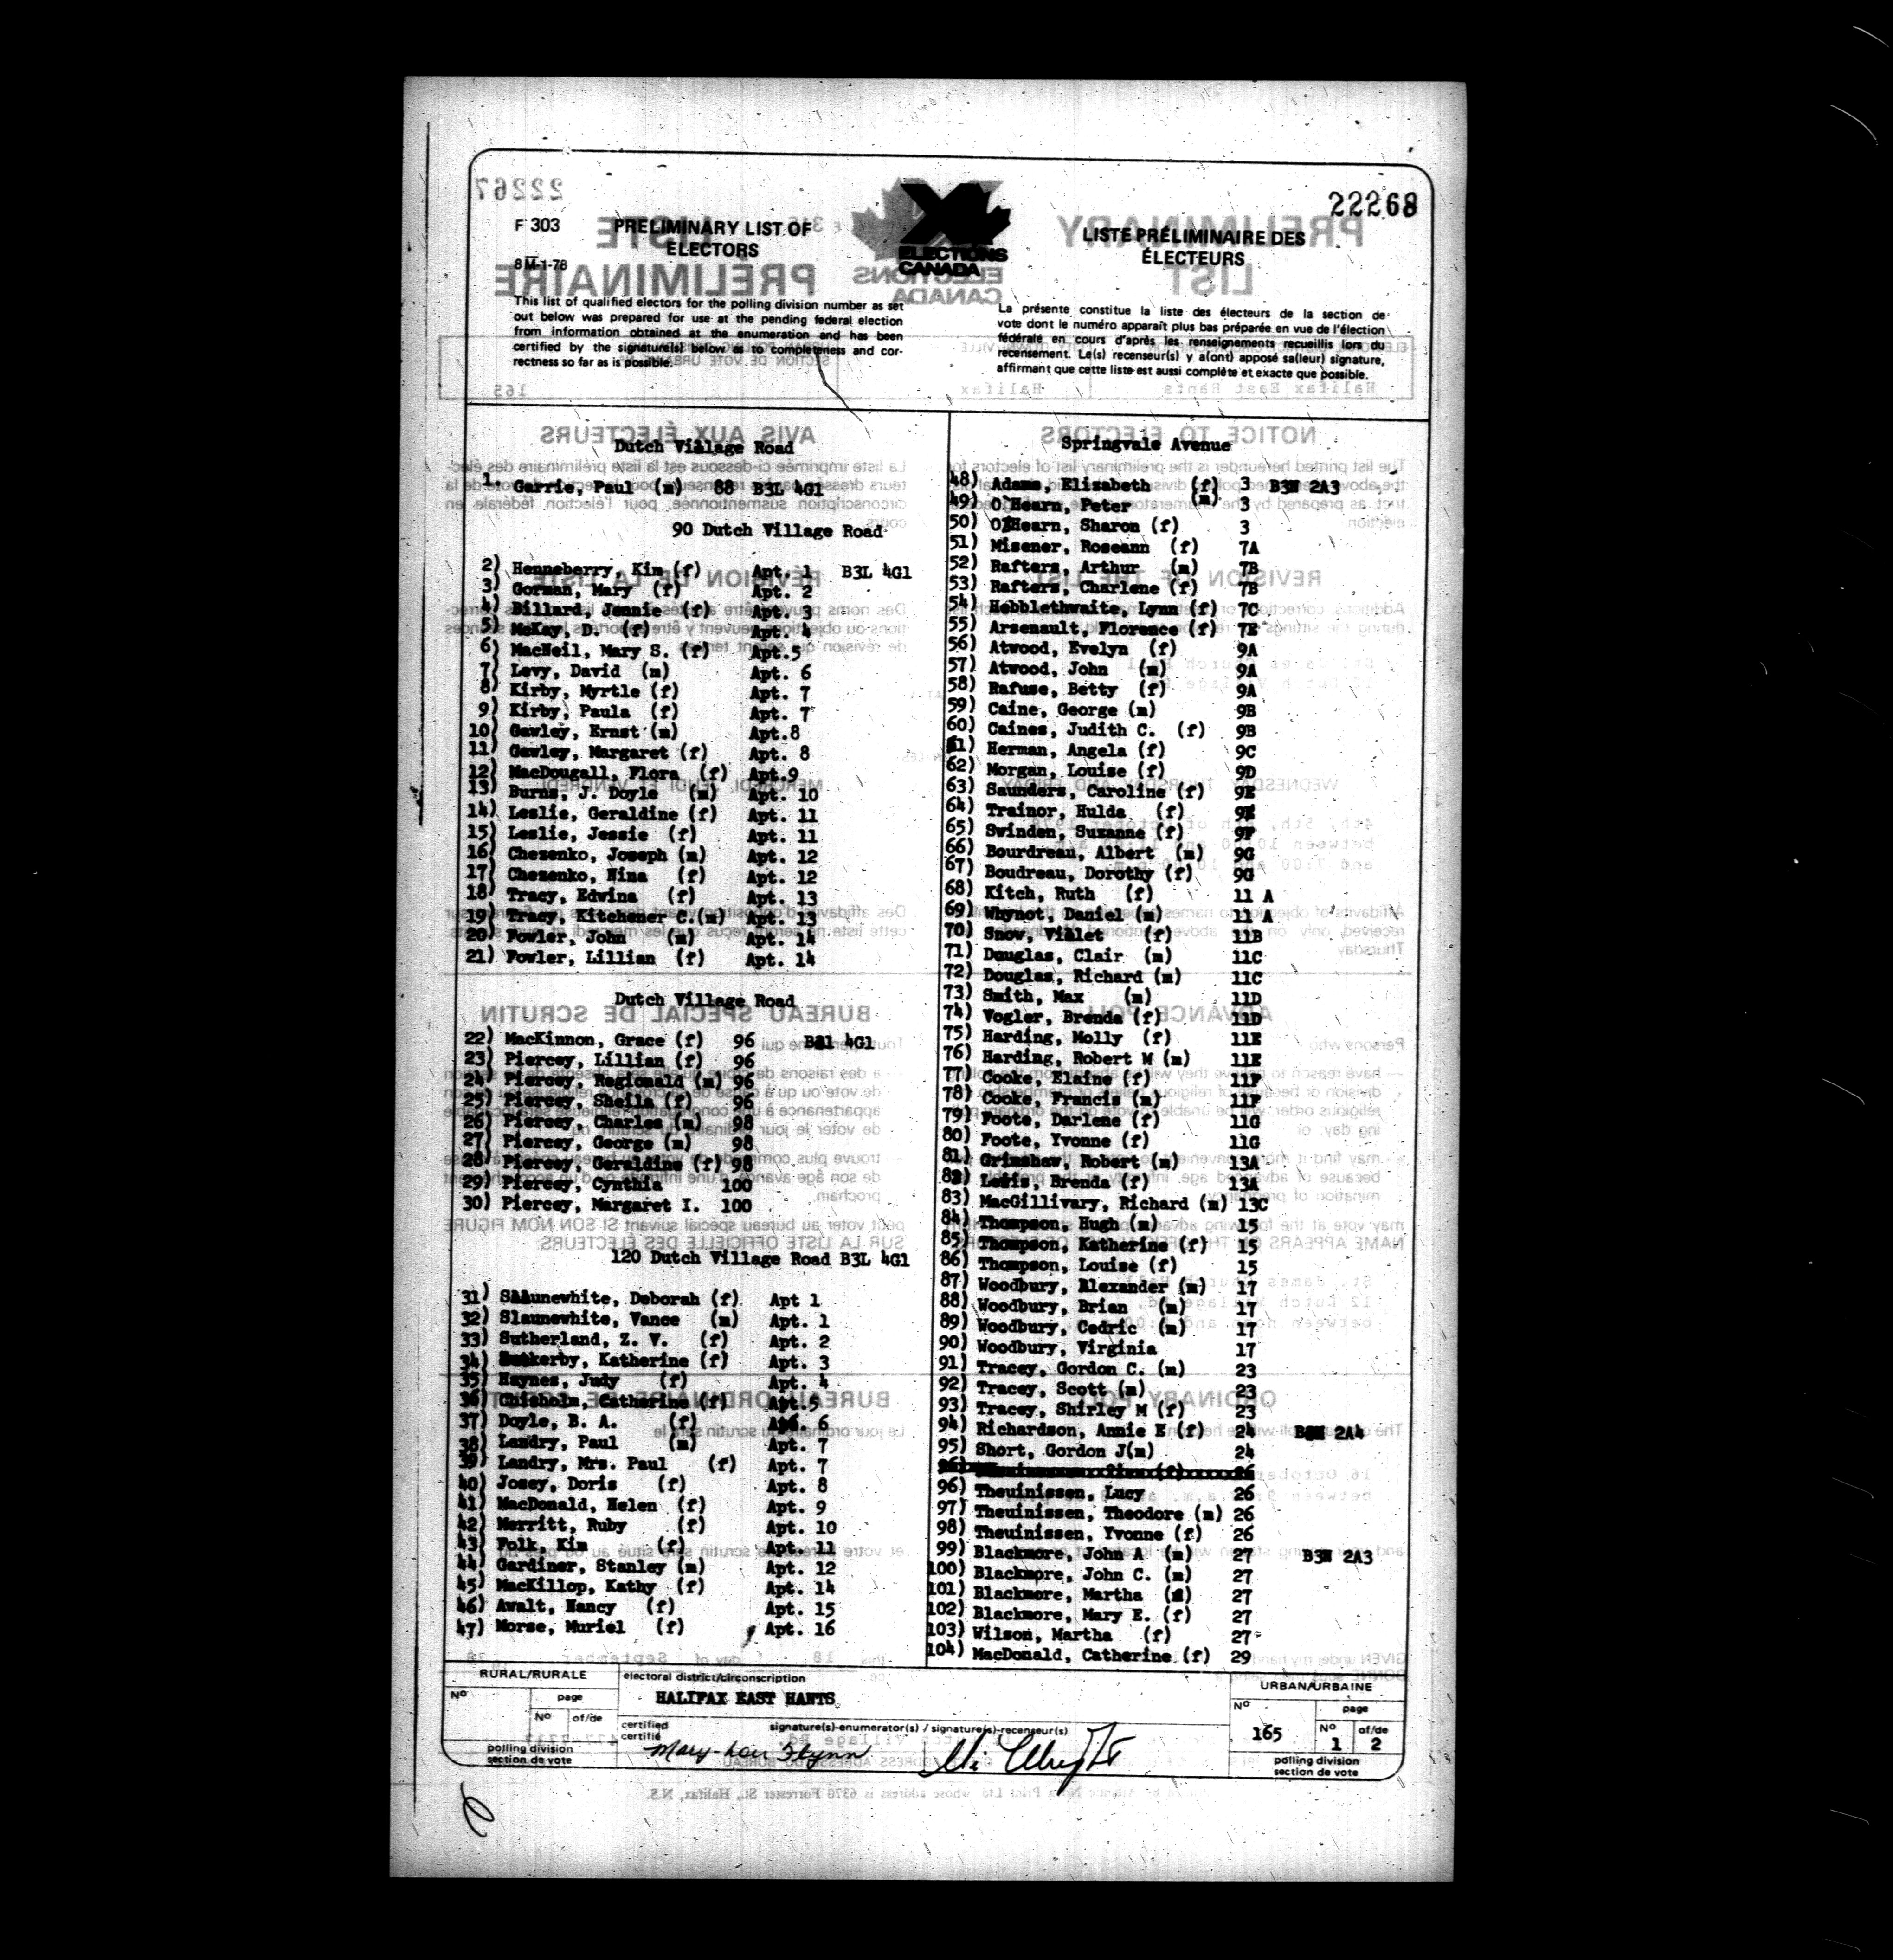 22268
F 303
8 M-1-78
PRELIMINARY LIST OF
ELECTORS
ELECTIONS
CANADA
LISTE PRÉLIMINAIRE DES
ÉLECTEURS
This list of qualified electors for the polling division number as set
out below was prepared for use at the pending federal election
from information obtained at the enumeration and has been
certified by the signature(s) below as to completeness and cor-
rectness so far as is possible.
La présente constitue la liste des électeurs de la section de
vote dont le numéro apparaît plus bas préparée en vue de l'élection
fédérale en cours d'après les renseignements recueillis lors du
recensement. Le(s) recenseur(s) y a(ont) apposé sa(leur) signature,
affirmant que cette liste est aussi complète et exacte que possible.
Dutch Village Road
1. Garrie, Paul (m) 88 B3L 4G1
90 Dutch Village Road
2) Henneberry, Kim (f) Apt. 1 B3L 4G1
3) Gorman, Mary (f) Apt. 2
4) Billard, Jennie (f) Apt. 3
5) McKay, D. (f) Apt. 4
6) MacNeil, Mary S. (f) Apt.5
7) Levy, David (m) Apt. 6
8) Kirby, Myrtle (f) Apt. 7
9) Kirby, Paula (f) Apt. 7
10) Gawley, Ernst (m) Apt.8
11) Gawley, Margaret (f) Apt. 8
12) MacDougall, Flora (f) Apt.9
13) Burns, J. Doyle (m) Apt. 10
14) Leslie, Geraldine (f) Apt. 11
15) Leslie, Jessie (f) Apt. 11
16) Chezenko, Joseph (m) Apt. 12
17) Chezenko, Nina (f) Apt. 12
18) Tracy, Edwina (f) Apt. 13
19) Tracy, Kitchener C.(m) Apt. 13
20) Fowler, John (m) Apt. 14
21) Fowler, Lillian (f) Apt. 14
Dutch Village Road
22) MacKinnon, Grace (f) 96 B31 4G1
23) Piercey, Lillian (f) 96
24) Piercey, Regionald (m) 96
25) Piercey, Sheila (f) 96
26) Piercey, Charles (m) 98
27) Piercey, George (m) 98
28) Piercey, Geraldine (f) 98
29) Piercey, Cynthia 100
30) Piercey, Margaret I. 100
120 Dutch Village Road B3L 4G1
31) Slaunewhite, Deborah (f) Apt 1
32) Slaunewhite, Vance (m) Apt. 1
33) Sutherland, Z. V. (f) Apt. 2
34) Katherine (f) Apt. 3
35) Haynes, Judy (f) Apt. 4
36) Chisholm, Catherine (f) Apt.5
37) Doyle, B. A. (f) Apt. 6
38) Landry, Paul (m) Apt. 7
39) Landry, Mrs. Paul (f) Apt. 7
40) Josey, Doris (f) Apt. 8
41) MacDonald, Helen (f) Apt. 9
42) Merritt, Ruby (f) Apt. 10
43) Folk, Kim (f) Apt. 11
44) Gardiner, Stanley (m) Apt. 12
45) MacKillop, Kathy (f) Apt. 14
46) Awalt, Nancy (f) Apt. 15
47) Morse, Muriel (f) Apt. 16
Springvale Avenue
48) Adams, Elizabeth (f) 3 B3N 2A3
49) O'Hearn, Peter (m) 3
50) O'Hearn, Sharon (f) 3
51) Misener, Roseann (f) 7A
52) Rafters, Arthur (m) 7B
53) Rafters, Charlene (f) 7B
54) Hebblethwaite, Lynn (f) 7C
55) Arsenault, Florence (f) 7E
56) Atwood, Evelyn (f) 9A
57) Atwood, John (m) 9A
58) Rafuse, Betty (f) 9A
59) Caine, George (m) 9B
60) Caines, Judith C. (f) 9B
61) Herman, Angela (f) 9C
62) Morgan, Louise (f) 9D
63) Saunders, Caroline (f) 9E
64) Trainor, Hulda (f) 9E
65) Swinden, Suzanne (f) 9F
66) Bourdreau, Albert (m) 9G
67) Boudreau, Dorothy (f) 9G
68) Kitch, Ruth (f) 11 A
69) Whynot, Daniel (m) 11 A
70) Snow, Violet (f) 11B
71) Douglas, Clair (m) 11C
72) Douglas, Richard (m) 11C
73) Smith, Max (m) 11D
74) Vogler, Brenda (f) 11D
75) Harding, Molly (f) 11E
76) Harding, Robert M (m) 11E
77) Cooke, Elaine (f) 11F
78) Cooke, Francis (m) 11F
79) Foote, Darlene (f) 11G
80) Foote, Yvonne (f) 11G
81) Grimshaw, Robert (m) 13A
82) Lewis, Brenda (f) 13A
83) MacGillivary, Richard (m) 13C
84) Thompson, Hugh (m) 15
85) Thompson, Katherine (f) 15
86) Thompson, Louise (f) 15
87) Woodbury, Alexander (m) 17
88) Woodbury, Brian (m) 17
89) Woodbury, Cedric (m) 17
90) Woodbury, Virginia 17
91) Tracey, Gordon C. (m) 23
92) Tracey, Scott (m) 23
93) Tracey, Shirley M (f) 23
94) Richardson, Annie E (f) 24 B3N 2A4
95) Short, Gordon J(m) 24
96) Theuinissen, Lucy 26
97) Theuinissen, Theodore (m) 26
98) Theuinissen, Yvonne (f) 26
99) Blackmore, John A (m) 27 B3N 2A3
100) Blackmore, John C. (m) 27
101) Blackmore, Martha (f) 27
102) Blackmore, Mary E. (f) 27
103) Wilson, Martha (f) 27
104) MacDonald, Catherine (f) 29
RURAL/RURALE
No
page
No of/de
polling division
section de vote
electoral district/circonscription
HALIFAX EAST HANTS
certified
certifié
signature(s)-enumerator(s) / signature(s)-recenseur(s)
Mary-Lou Flynn
URBAN/URBAINE
No
165
page
No of/de
1 2
polling division
section de vote